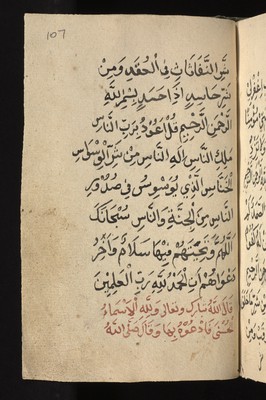 107
شَرِّ النَّفَّاثَاتِ فِي الْعُقَدِ وَمِنْ
شَرِّ حَاسِدٍ اِذَا حَسَدَ بِسْمِ اللّٰهِ
الرَّحْمٰنِ الرَّحِيمِ قُلْ اَعُوذُ بِرَبِّ النَّاسِ
مَلِكِ النَّاسِ اِلٰهِ النَّاسِ مِنْ شَرِّ الْوَسْوَاسِ
الْخَنَّاسِ الَّذِي يُوَسْوِسُ فِي صُدُورِ
النَّاسِ مِنَ الْجِنَّةِ وَالنَّاسِ سُبْحَانَكَ
اللّٰهُمَّ وَتَحِيَّتُهُمْ فِيهَا سَلَامٌ وَآخِرُ
دَعْوٰاهُمْ اَنِ الْحَمْدُ لِلّٰهِ رَبِّ الْعٰلَمِينَ
قَالَ اللّٰهُ تَبَارَكَ وَتَعَالٰى وَلِلّٰهِ الْاَسْمَاءُ
حُسْنٰى فَادْعُوهُ بِهَا وَقَالَ صَلَّى اللّٰهُ